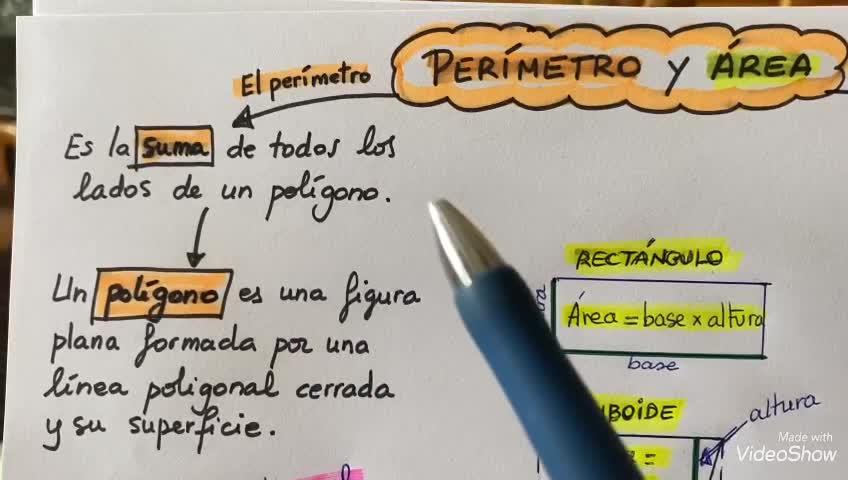 PERÍMETRO y ÁREA
El perímetro
Es la suma de todos los
lados de un polígono.
Un polígono es una figura
plana formada por una
línea poligonal cerrada
y su superficie.
RECTÁNGULO
Área = base x altura
base
altura
Made with
VideoShow